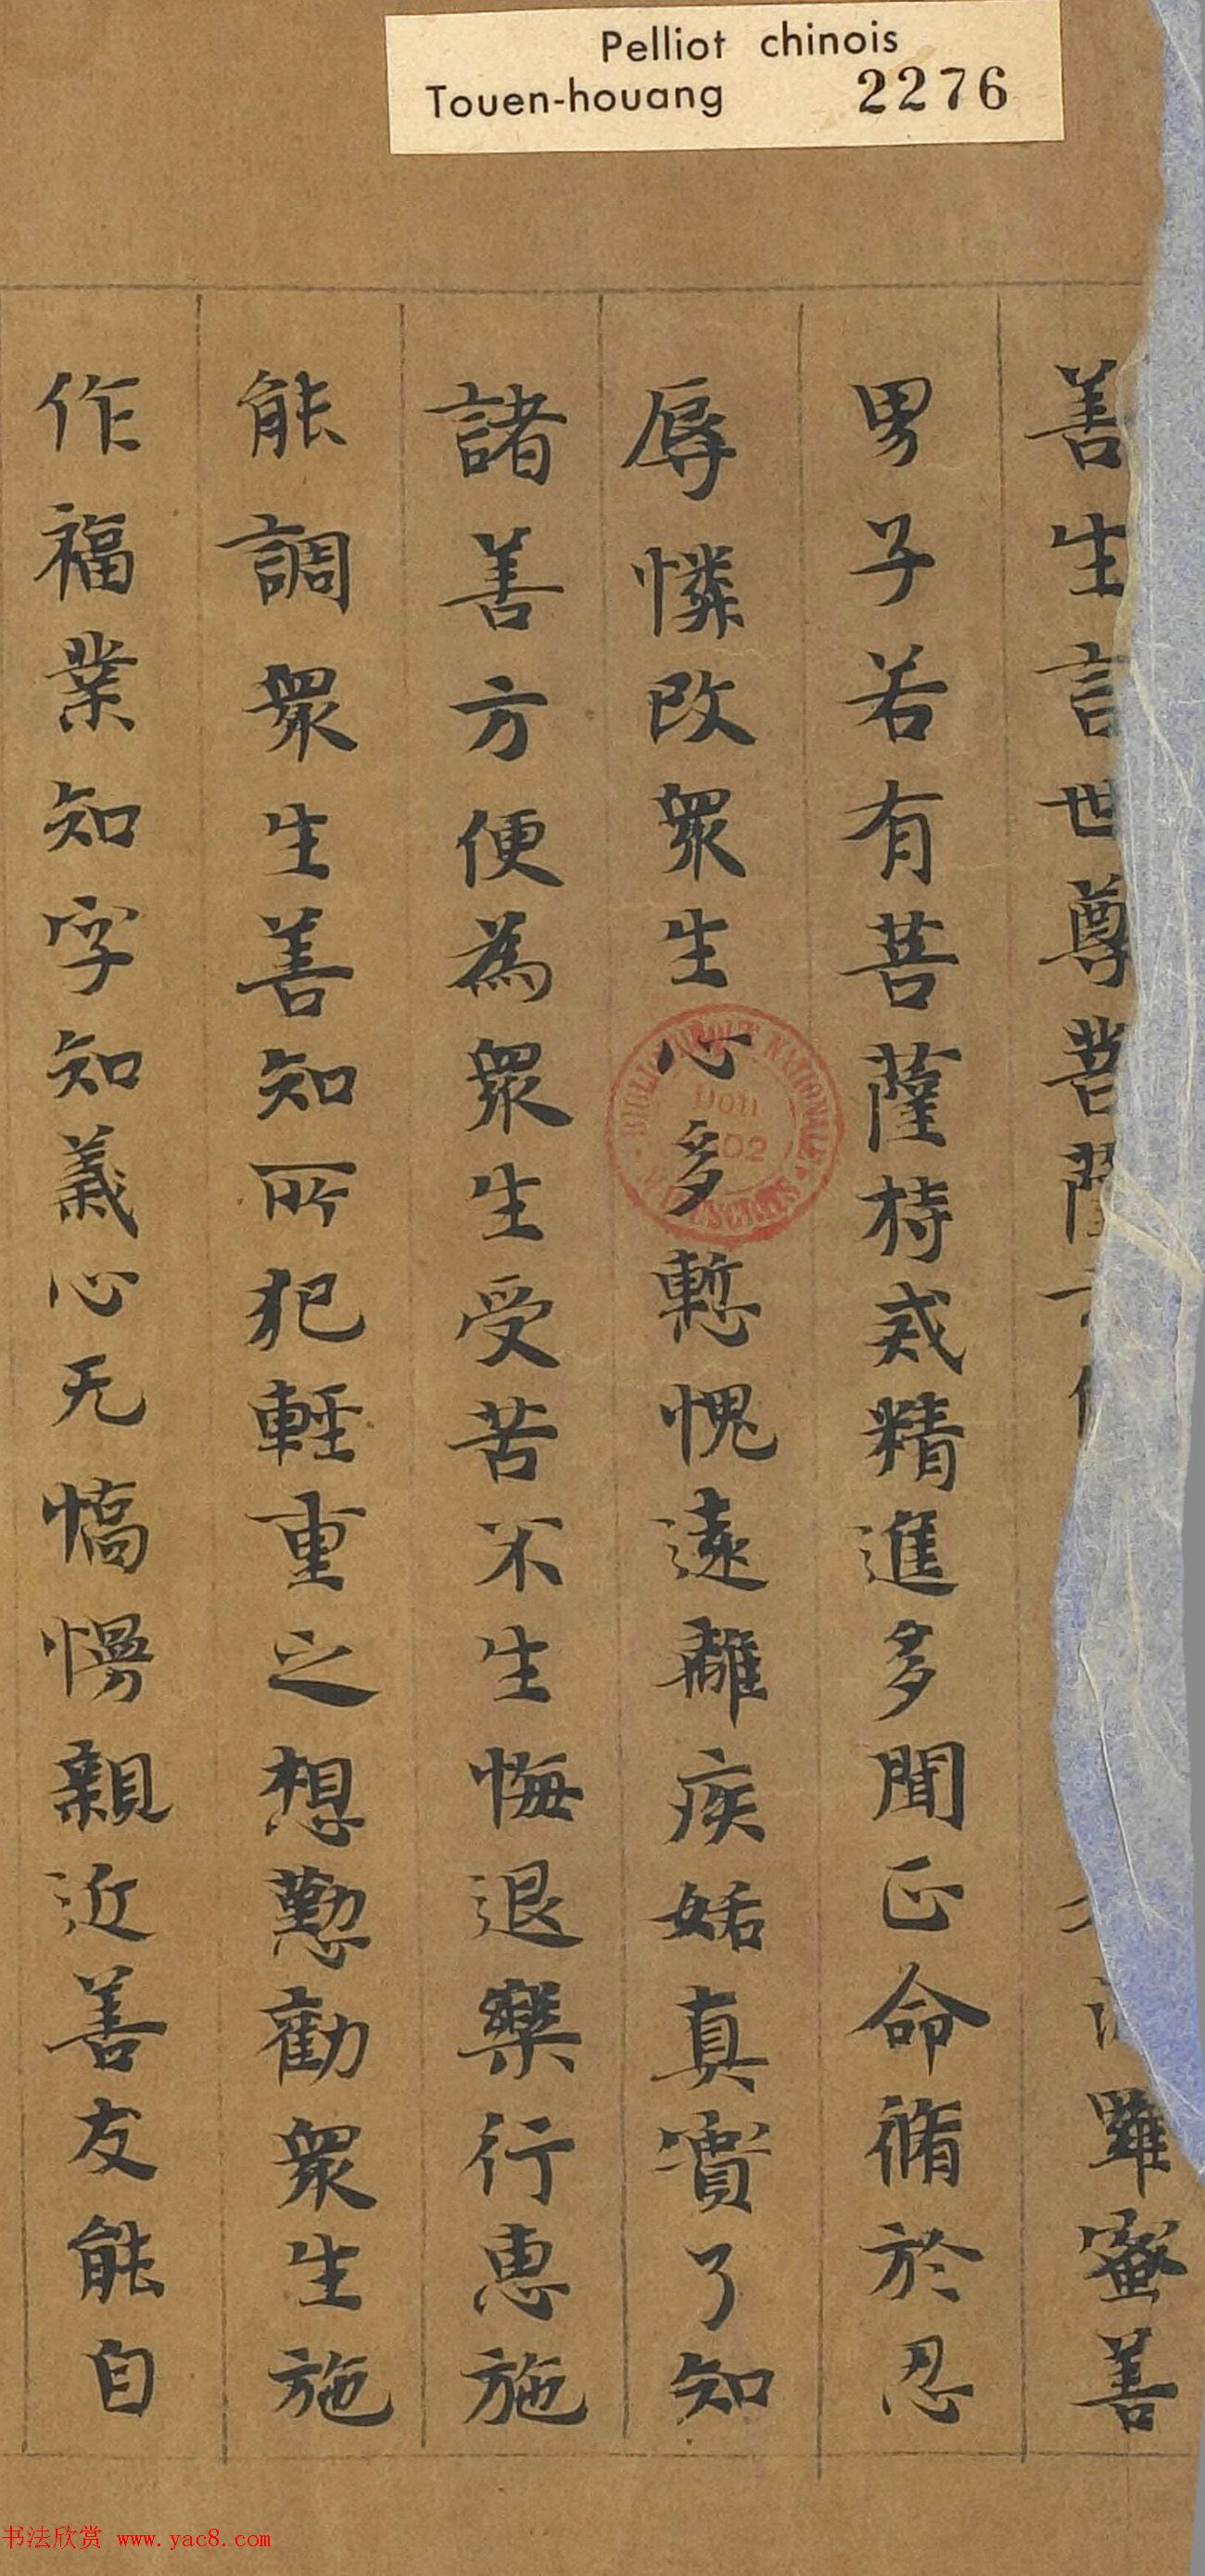 Pelliot chinois
Touen-houang 2276
善生言世尊菩薩 雖蜜善
男子若有菩薩持戒精進多聞正命脩於忍
辱憐改眾生心多慙愧遠離疾妬真實了知
諸善方便為眾生受苦不生悔退樂行惠施
能調眾生善知所犯輕重之想懃勸眾生施
作福業知字知義心无憍慢親近善友能自
BIBLIOTHEQUE NATIONALE
MANUSCRITS
书法欣赏 www.yac8.com